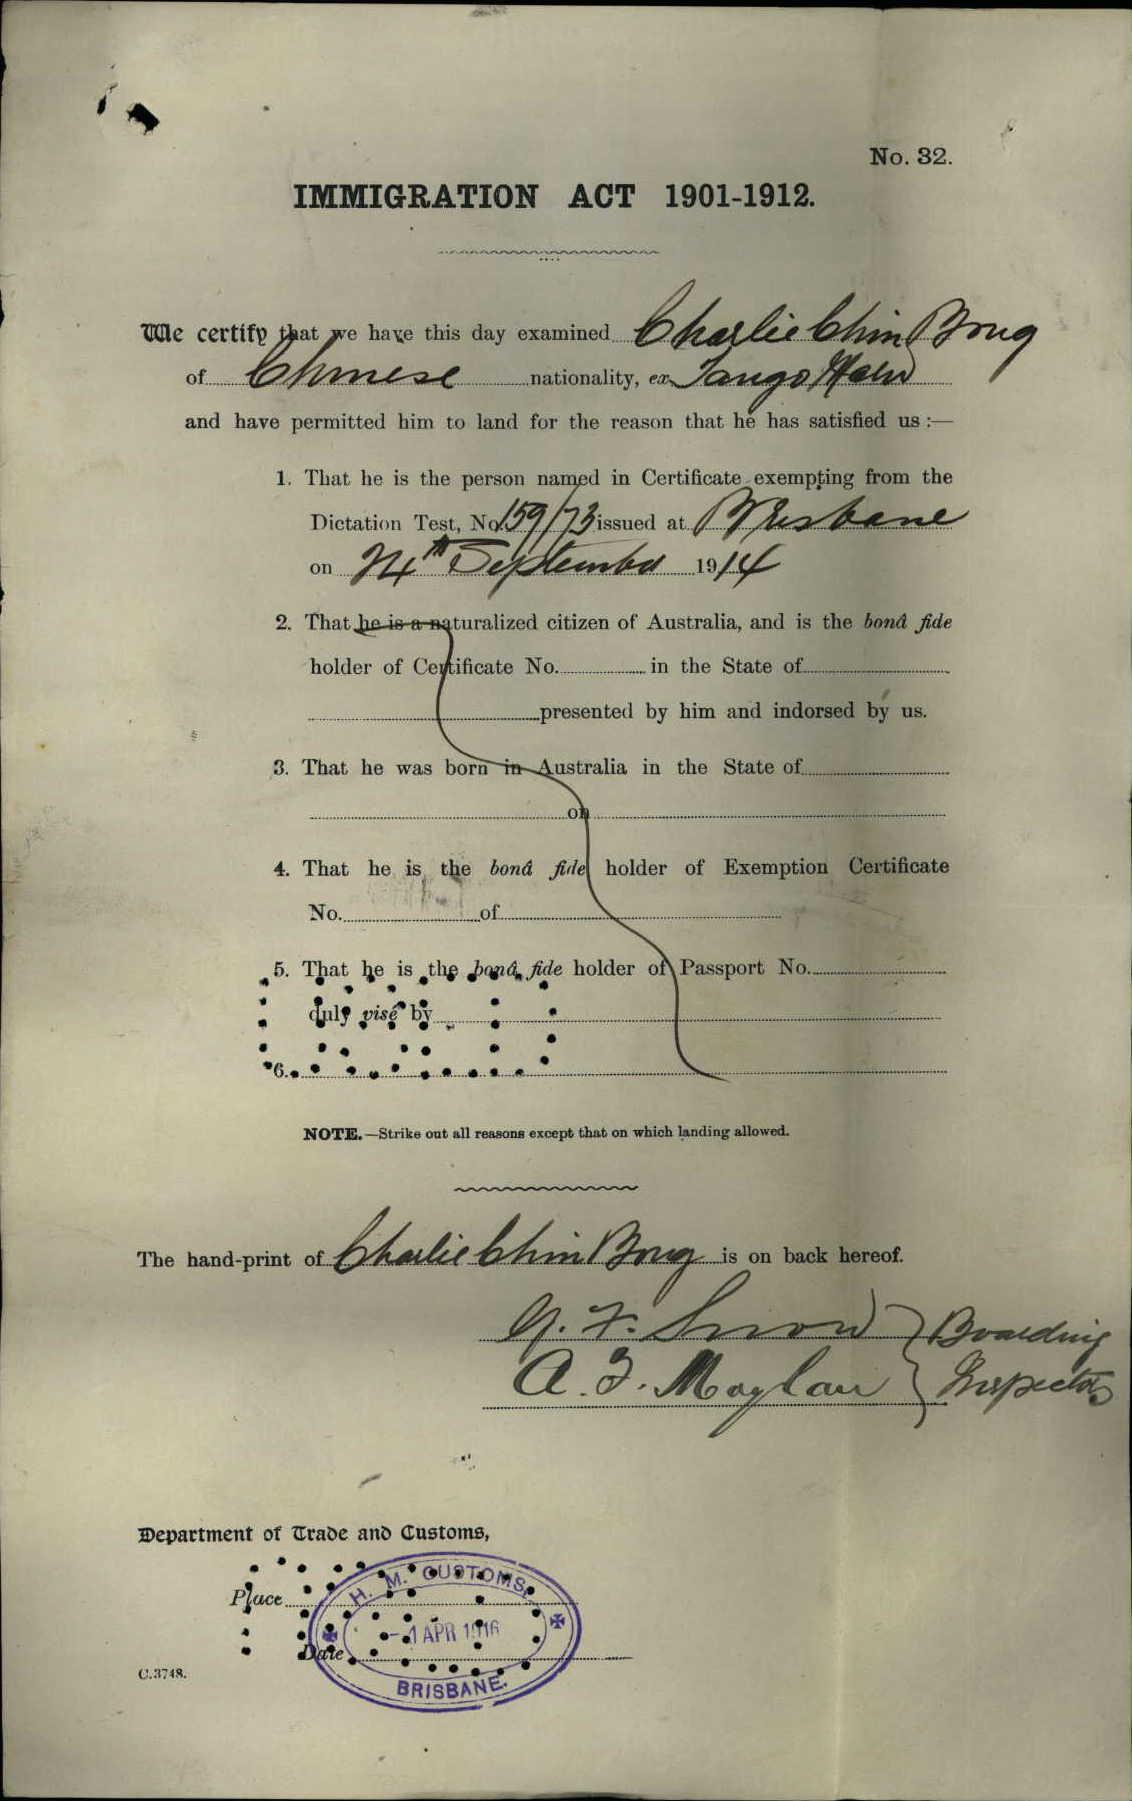 No. 32.
IMMIGRATION ACT 1901-1912.
We certify that we have this day examined Charlie Chin Bong
of Chinese nationality, ex Tango Maru
and have permitted him to land for the reason that he has satisfied us :—
1. That he is the person named in Certificate exempting from the
Dictation Test, No. 159/73 issued at Brisbane
on 24th September 1914
2. That he is a naturalized citizen of Australia, and is the bonâ fide
holder of Certificate No. in the State of
presented by him and indorsed by us.
3. That he was born in Australia in the State of
on
4. That he is the bonâ fide holder of Exemption Certificate
No. of
5. That he is the bonâ fide holder of Passport No.
duly visé by
6.
NOTE.—Strike out all reasons except that on which landing allowed.
The hand-print of Charlie Chin Bong is on back hereof.
F. Snow } Boarding
A. F. } Inspectors
Department of Trade and Customs,
Place
Date
H. M. CUSTOMS,
- 1 APR 1916
BRISBANE.
C.3748.